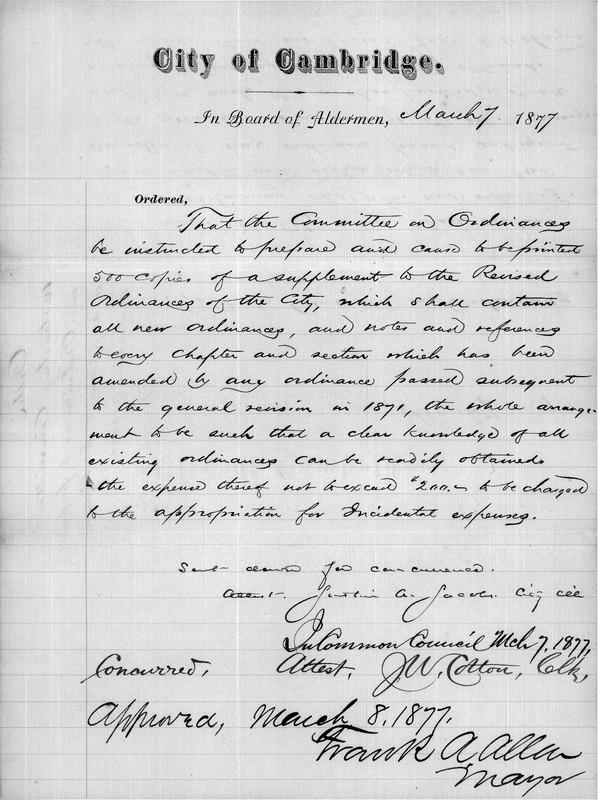 City of Cambridge.
In Board of Aldermen, March 7. 1877
Ordered,
That the Committee on Ordinances
be instructed to prepare and cause to be printed
500 copies of a supplement to the Revised
Ordinances of the City, which shall contain
all new ordinances, and notes and references
to every chapter and section which has been
amended by any ordinance passed subsequent
to the general revision in 1871, the whole arrange-
ment to be such that a clear knowledge of all
existing ordinances can be readily obtained
the expense thereof not to exceed $200.- to be charged
to the appropriation for Incidental expenses.
Sent down for concurrence.
Attest- Justin A. Jacobs. City Clk
In Common Council Mch 7, 1877,
Concurred, Attest, J.W. Cotton, Clk,
Approved, March 8. 1877.
Frank A Allen
Mayor